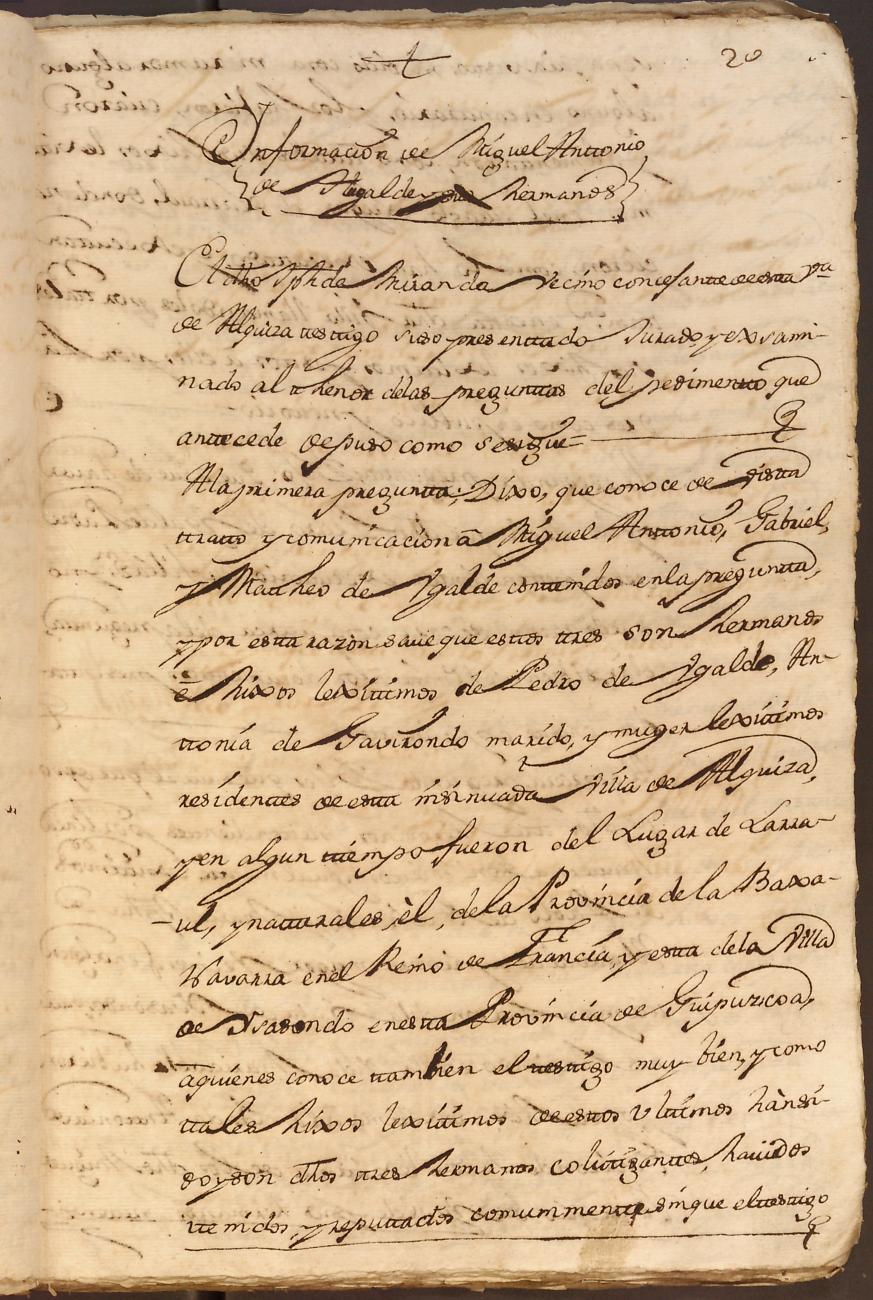 20
Informacion de Miguel Anttonio
de Ygalde y sus hermanos
El dho Jph de Miranda vecino concejante de esta va
de Alquiza testigo sido presenttado Jurado y exsami-
nado al thenor delas preguntas del pedimento que
antecede depuso como se sigue =
Ala primera pregunta; Dixo, que conoce de vista
tratto y comunicacion a Miguel Anttonio, Gabriel,
y Matheo de Ygalde contenidos enla pregunta,
y por esta razon save que estos tres son hermanos
e hixos lexitimos de Pedro de Ygalde, An-
ttonia de Gavirondo marido, y muger lexitimos
residentes de esta insinuada villa de Alquiza,
y en algun tiempo fueron del Lugar de Larra-
ul, y naturales, èl, dela Provincia de la Baxa-
Navarra enel Reino de Francia, y esta dela Villa
de Ysasondo enesta Provincia de Guipuzcoa,
aquienes conoce tambien el testigo muy bien, y como
tales hixos lexitimos de estos ultimos han si-
do y son dhos tres hermanos colitigantes, havidos
tenidos, y reputtados comunmente, sin que el testigo